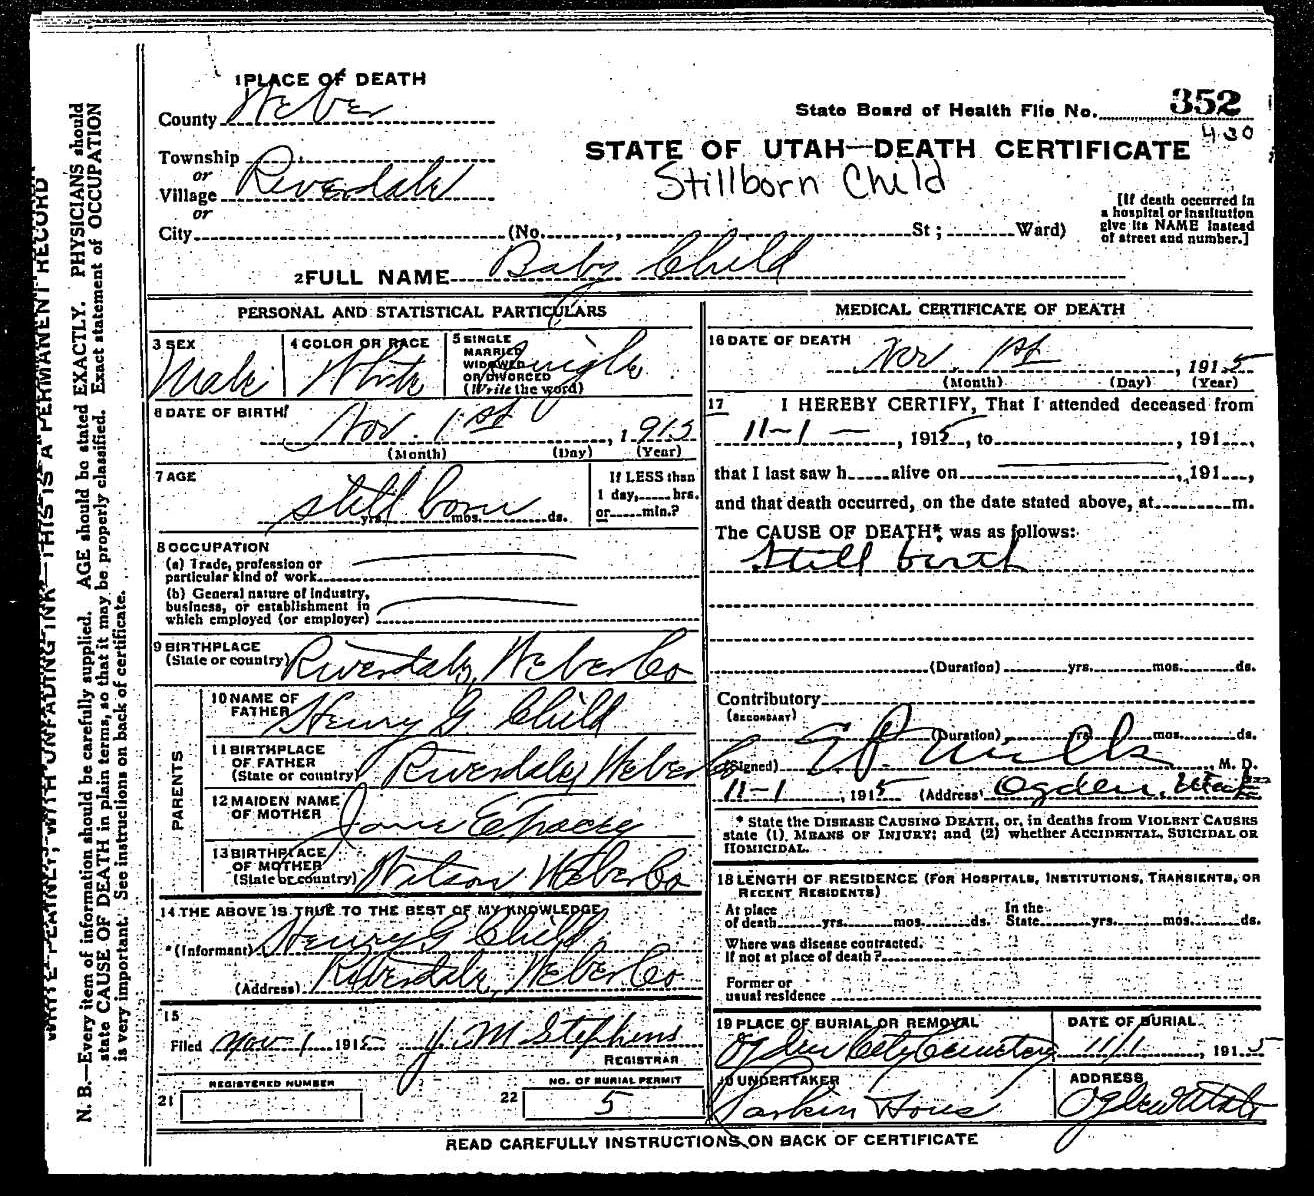 WRITE PLAINLY, WITH UNFADING INK—THIS IS A PERMANENT RECORD
N. B.—Every item of information should be carefully supplied. AGE should be stated EXACTLY. PHYSICIANS should
state CAUSE OF DEATH in plain terms, so that it may be properly classified. Exact statement of OCCUPATION
is very important. See instructions on back of certificate.
1 PLACE OF DEATH
County Weber
State Board of Health File No. 352
430
Township
or
Village Riverdale
or
City (No. , St; Ward)
STATE OF UTAH—DEATH CERTIFICATE
Stillborn Child
[If death occurred in
a hospital or institution
give its NAME instead
of street and number.]
2 FULL NAME Baby Child
PERSONAL AND STATISTICAL PARTICULARS
3 SEX
Male
4 COLOR OR RACE
White
5 SINGLE
MARRIED
WIDOWED
OR DIVORCED
(Write the word)
Single
6 DATE OF BIRTH
Nov. 1st, 1915
(Month) (Day) (Year)
7 AGE
still born
yrs. mos. ds.
If LESS than
1 day, hrs.
or min.?
8 OCCUPATION
(a) Trade, profession or
particular kind of work
(b) General nature of industry,
business, or establishment in
which employed (or employer)
9 BIRTHPLACE
(State or country) Riverdale, Weber Co
PARENTS
10 NAME OF
FATHER Henry G Child
11 BIRTHPLACE
OF FATHER
(State or country) Riverdale, Weber Co
12 MAIDEN NAME
OF MOTHER Jane E Tracy
13 BIRTHPLACE
OF MOTHER
(State or country) Wilson Weber Co
14 THE ABOVE IS TRUE TO THE BEST OF MY KNOWLEDGE
(Informant) Henry G Child
(Address) Riverdale, Weber Co
15
Filed Nov 1 1915 J. M Stephens
REGISTRAR
REGISTERED NUMBER
21
NO. OF BURIAL PERMIT
22 5
MEDICAL CERTIFICATE OF DEATH
16 DATE OF DEATH
Nov. 1st, 1915
(Month) (Day) (Year)
17 I HEREBY CERTIFY, That I attended deceased from
11-1—, 1915, to , 191 ,
that I last saw h alive on , 191 ,
and that death occurred, on the date stated above, at m.
The CAUSE OF DEATH* was as follows:
Still birth
(Duration) yrs. mos. ds.
Contributory
(SECONDARY)
(Duration) yrs. mos. ds.
(Signed) E P Mills, M. D.
11-1, 1915 (Address) Ogden, Utah
* State the DISEASE CAUSING DEATH, or, in deaths from VIOLENT CAUSES
state (1), MEANS OF INJURY; and (2) whether ACCIDENTAL, SUICIDAL OR
HOMICIDAL.
18 LENGTH OF RESIDENCE (FOR HOSPITALS, INSTITUTIONS, TRANSIENTS, OR
RECENT RESIDENTS)
At place
of death yrs. mos. ds.
In the
State yrs. mos. ds.
Where was disease contracted,
If not at place of death?
Former or
usual residence
19 PLACE OF BURIAL OR REMOVAL
Ogden City Cemetery
DATE OF BURIAL
11/1, 1915
20 UNDERTAKER
Larkin Sons
ADDRESS
Ogden Utah
READ CAREFULLY INSTRUCTIONS ON BACK OF CERTIFICATE